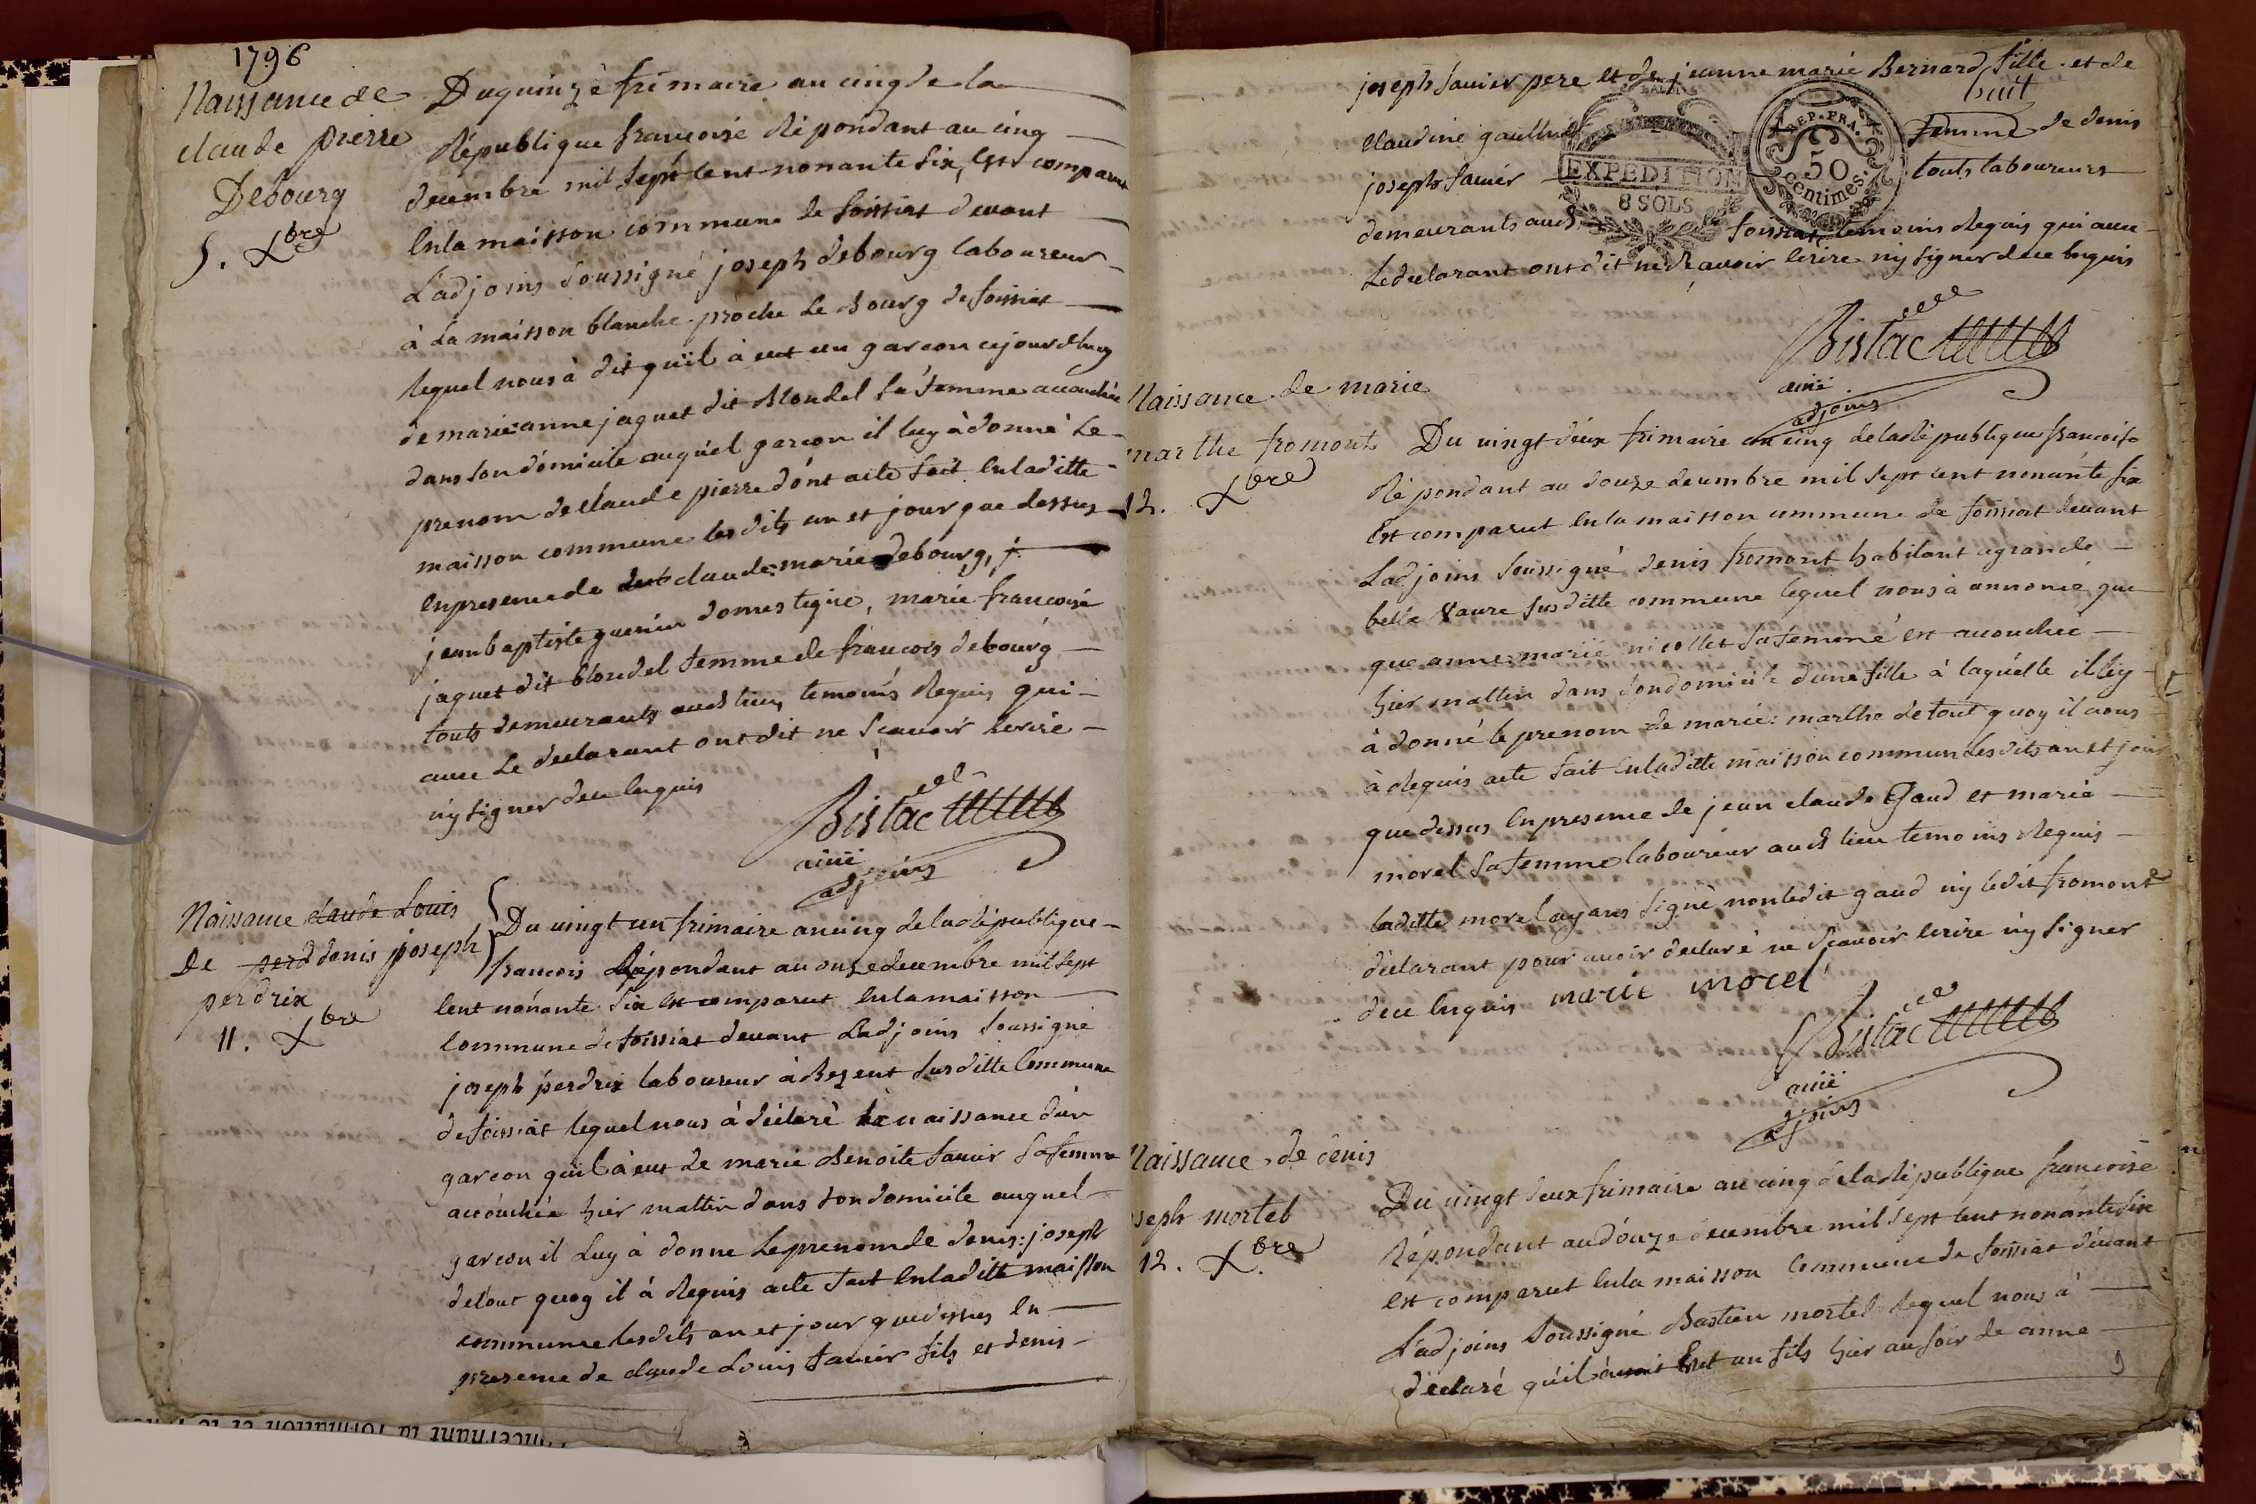 1796
Naissance de
claude pierre
Debourg
5. Xbre
Du quinze frimaire an cinq de la
République francoise Répondant au cinq
decembre mil sept cent nonante six, Est comparut
En la maisson commune de foissiat devant
Ladjoins soussigné joseph debourg laboureur
à La maisson blanche proche Le Bourg de foissiat
lequel nous à dit quil à eut un garcon cejourdhuy
de marie anne jaquet dit Blondel sa femme accouchée
dans son domicile auquel garcon il luy à donné Le
prenom de Claude pierre dont acte fait En laditte
maisson commune les dits an et jour que dessus
En presence de claude marie debourg,
jean baptiste guerin domestique, marie francoise
jaquet dit blondel femme de francois debourg
touts demeurants audt lieu, temoins Requis qui
avec Le declarant ont dit ne Scavoir Ecrire
ny signer de ce Enquis
Bistac
ainé
adjoins
Naissance claude Louis
De perd denis joseph
perdrix
11. Xbre
Du vingt un frimaire an cinq de la République
francois Répondant au onze decembre mil sept
Cent nonante six est comparut En la maisson
Commune de foissiat devant Ladjoins soussigné
joseph perdrix laboureur à Bezent susditte Commune
de foissiat lequel nous à déclaré la naissance d'un
garcon quil à eut de marie Benoite savier sa femme
accouchée hier mattin dans son domicile auquel
garcon il Luy à donne Le prenom de denis: joseph
de tout quoy il à Requis acte fait En laditte maisson
commune les dits an et jour que dessus En
presence de claude Louis savier fils et denis
joseph savier pere et de jeanne marie Bernard fille et de
huit
claudine gaulthier femme de denis
joseph savier touts laboureurs
demeurants audt foissiat temoins Requis qui avec
Le declarant ont dit ne Scavoir Ecrire ny signer de ce Enquis
EXPEDITION
8 SOLS
REP. FRA.
50
centimes.
Bistac
ainé
adjoins
Naissance de marie
marthe fromont
12. Xbre
Du vingt deux frimaire an cinq de la République francoise
Répondant au douze decembre mil sept cent nonante six
Est comparut En la maisson commune de foissiat devant
Ladjoins soussigné denis fromont habitant a grande
belle Vavre susditte commune lequel nous à annoncé que
que anne marie nicollet sa femme est accouchée
hier mattin dans son domicile dune fille à laquelle il luy
à donné le prenom de marie: marthe de tout quoy il nous
à Requis acte fait En laditte maisson commune les dits an et jour
que dessus En presence de jean claude Gaud et marie
morel sa femme laboureur audt lieu temoins Requis
laditte morel ayans signé non ledit gaud ny ledit fromont
declarant pour avoir declaré ne Scavoir Ecrire ny signer
de ce Enquis marie morel
Bistac
ainé
adjoins
Naissance de denis
seph mortel
12. Xbre
Du vingt deux frimaire an cinq de la République francoise
Répondant au douze decembre mil sept cent nonante six
Est comparut En la maisson Commune de foissiat devant
Ladjoins soussigné Bastien mortel lequel nous à
declaré quil avoit Eut un fils hier au soir de anne